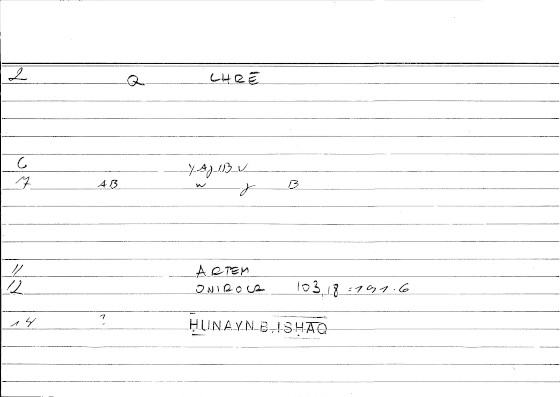 2 Q CHRĒ
6 YAJIBU
7 AB w j B
11 ARTEM
12 ONIROCR 103,18 = 191.6
14 ? ḤUNAYN B. ISḤĀQ